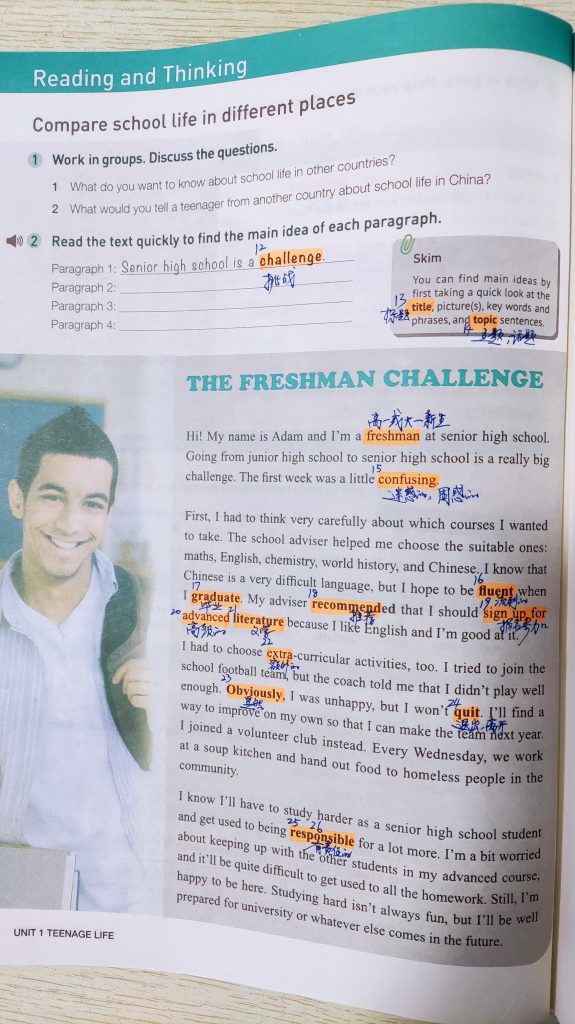 Reading and Thinking
Compare school life in different places
1 Work in groups. Discuss the questions.
1 What do you want to know about school life in other countries?
2 What would you tell a teenager from another country about school life in China?
2 Read the text quickly to find the main idea of each paragraph.
12
Paragraph 1: Senior high school is a challenge.
挑战
Paragraph 2:
Paragraph 3:
Paragraph 4:
Skim
You can find main ideas by
first taking a quick look at the
13
title, picture(s), key words and
标题
phrases, and topic sentences.
14 主题，话题
THE FRESHMAN CHALLENGE
高一或大一新生
Hi! My name is Adam and I'm a freshman at senior high school.
Going from junior high school to senior high school is a really big
15
challenge. The first week was a little confusing.
迷惑的，困惑的
First, I had to think very carefully about which courses I wanted
to take. The school adviser helped me choose the suitable ones:
maths, English, chemistry, world history, and Chinese. I know that
16
Chinese is a very difficult language, but I hope to be fluent when
17 18 19 流利的
I graduate. My adviser recommended that I should sign up for
20 毕业 21 推荐 报名参加
advanced literature because I like English and I'm good at it.
高级的 文学
22
I had to choose extra-curricular activities, too. I tried to join the
额外的
school football team, but the coach told me that I didn't play well
23 24
enough. Obviously, I was unhappy, but I won't quit. I'll find a
显然 退出，离开
way to improve on my own so that I can make the team next year.
I joined a volunteer club instead. Every Wednesday, we work
at a soup kitchen and hand out food to homeless people in the
community.
I know I'll have to study harder as a senior high school student
25 26
and get used to being responsible for a lot more. I'm a bit worried
有责任的
about keeping up with the other students in my advanced course,
and it'll be quite difficult to get used to all the homework. Still, I'm
happy to be here. Studying hard isn't always fun, but I'll be well
prepared for university or whatever else comes in the future.
UNIT 1 TEENAGE LIFE